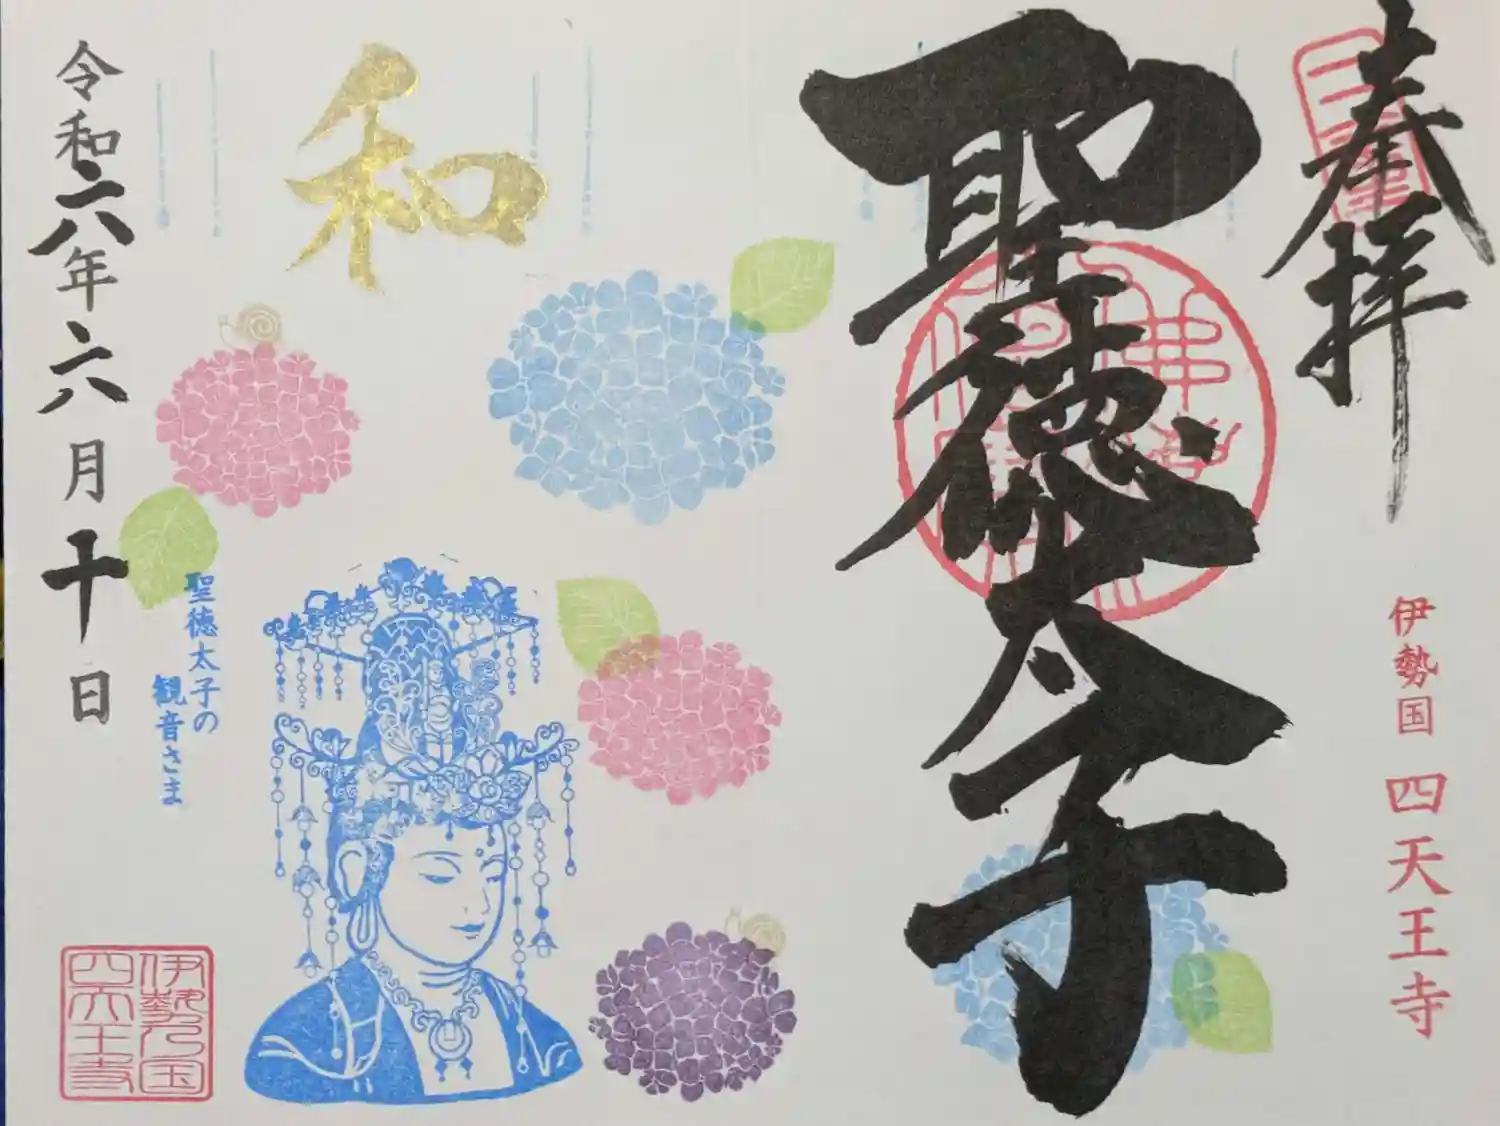 奉拝
伊勢国 四天王寺
聖徳太子
和
聖徳太子の
観音さま
令和六年六月十日
伊勢乃国
四天王寺